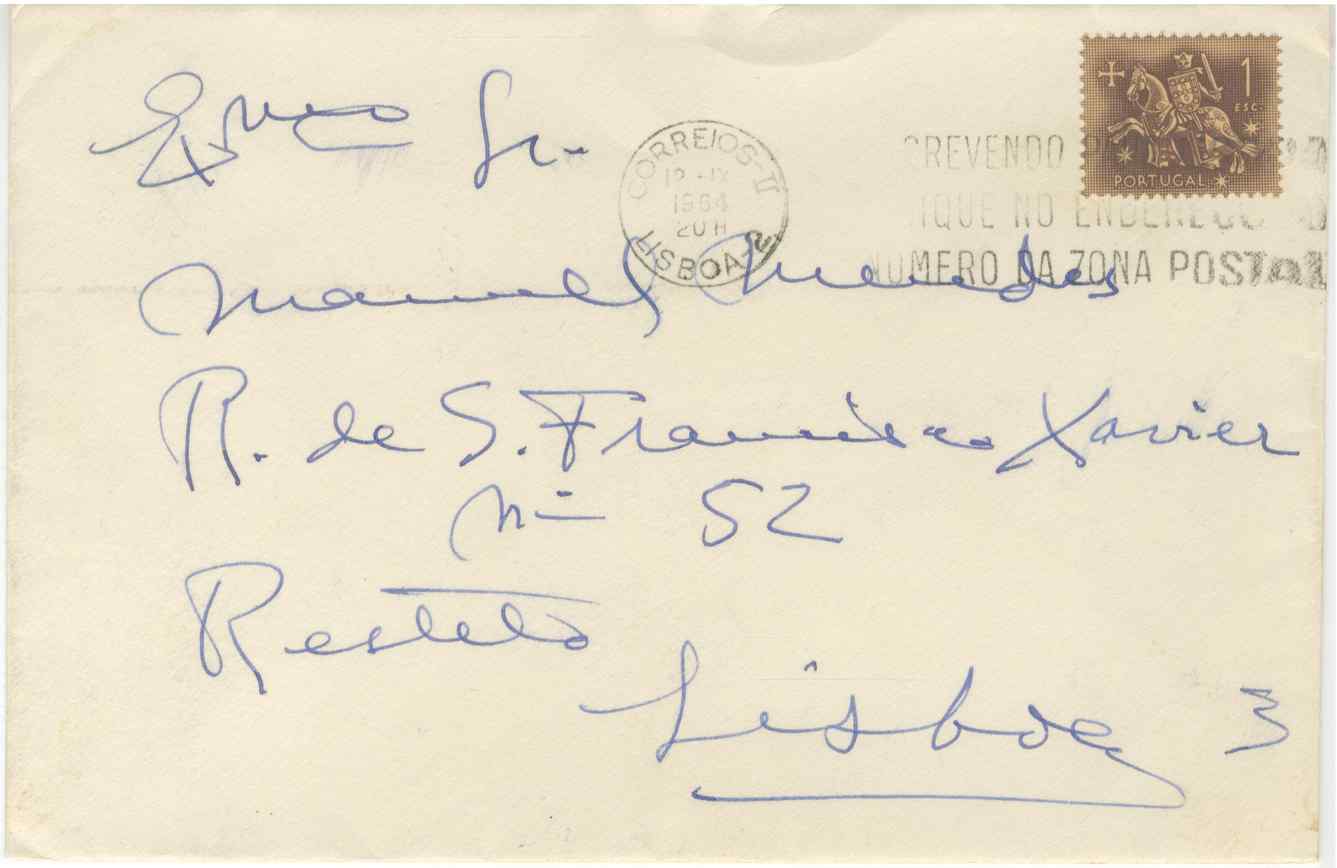 Exmo Sr.
CORREIOS-II
12-IX
1964
20H
LISBOA-2
CREVENDO
IQUE NO ENDEREÇO
NUMERO DA ZONA POSTAL
1
ESC.
PORTUGAL
Manuel Mendes
R. de S. Francisco Xavier
nº 52
Restelo
Lisboa 3